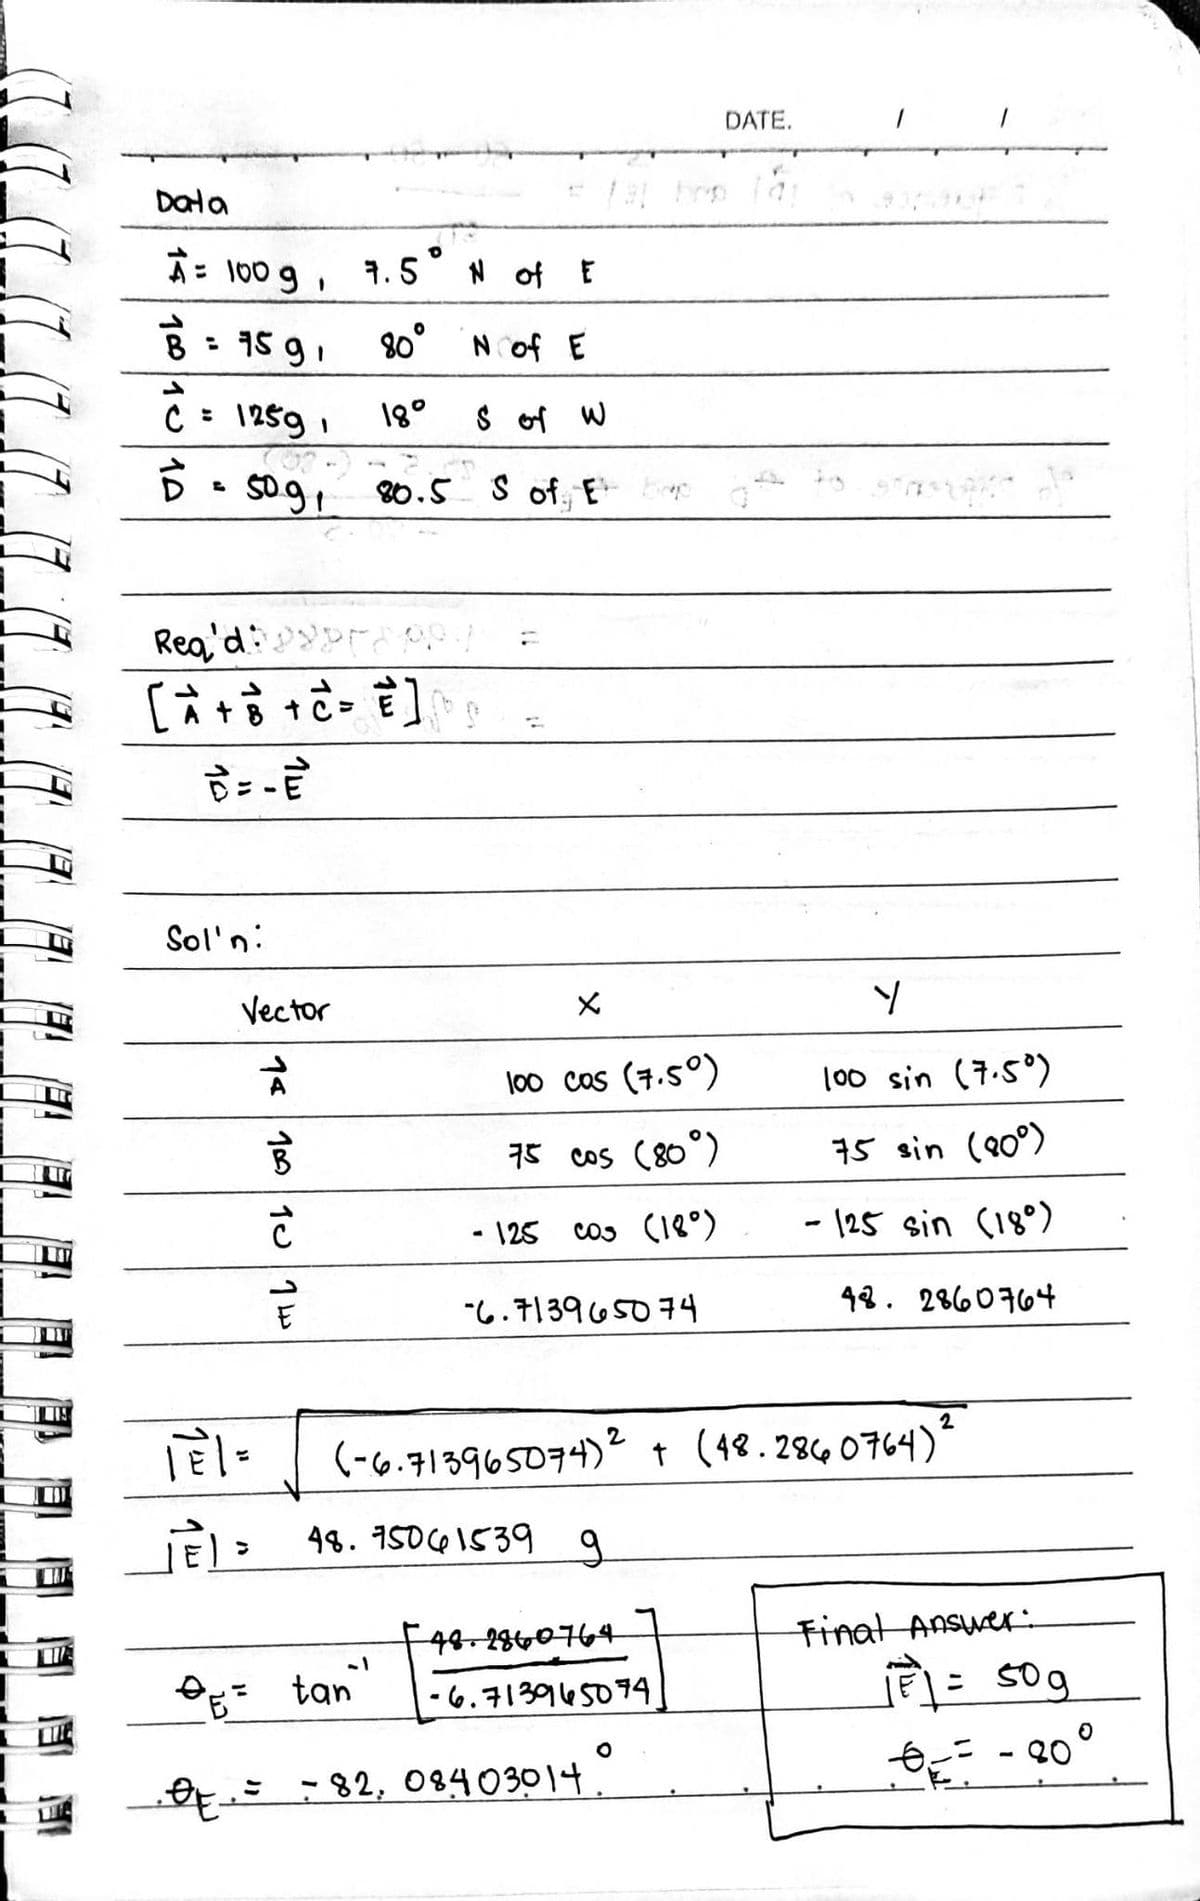 DATE. / /
Data
A⃗ = 100 g, 7.5° N of E
B⃗ = 75 g, 80° N of E
C⃗ = 125g, 18° S of W
D⃗ = 50g, 80.5 S of E
Req'd:
[A⃗ + B⃗ + C⃗ = E⃗]
D⃗ = -E⃗
Sol'n:
Vector X Y
A⃗ 100 cos (7.5°) 100 sin (7.5°)
B⃗ 75 cos (80°) 75 sin (80°)
C⃗ -125 cos (18°) -125 sin (18°)
E⃗ -6.713965074 48.2860764
|E⃗| = √(-6.713965074)² + (48.2860764)²
|E⃗| = 48.75061539 g
θE = tan⁻¹ [48.2860764 / -6.713965074]
θE = -82.08403014°
Final Answer:
|E⃗| = 50g
θE = -80°